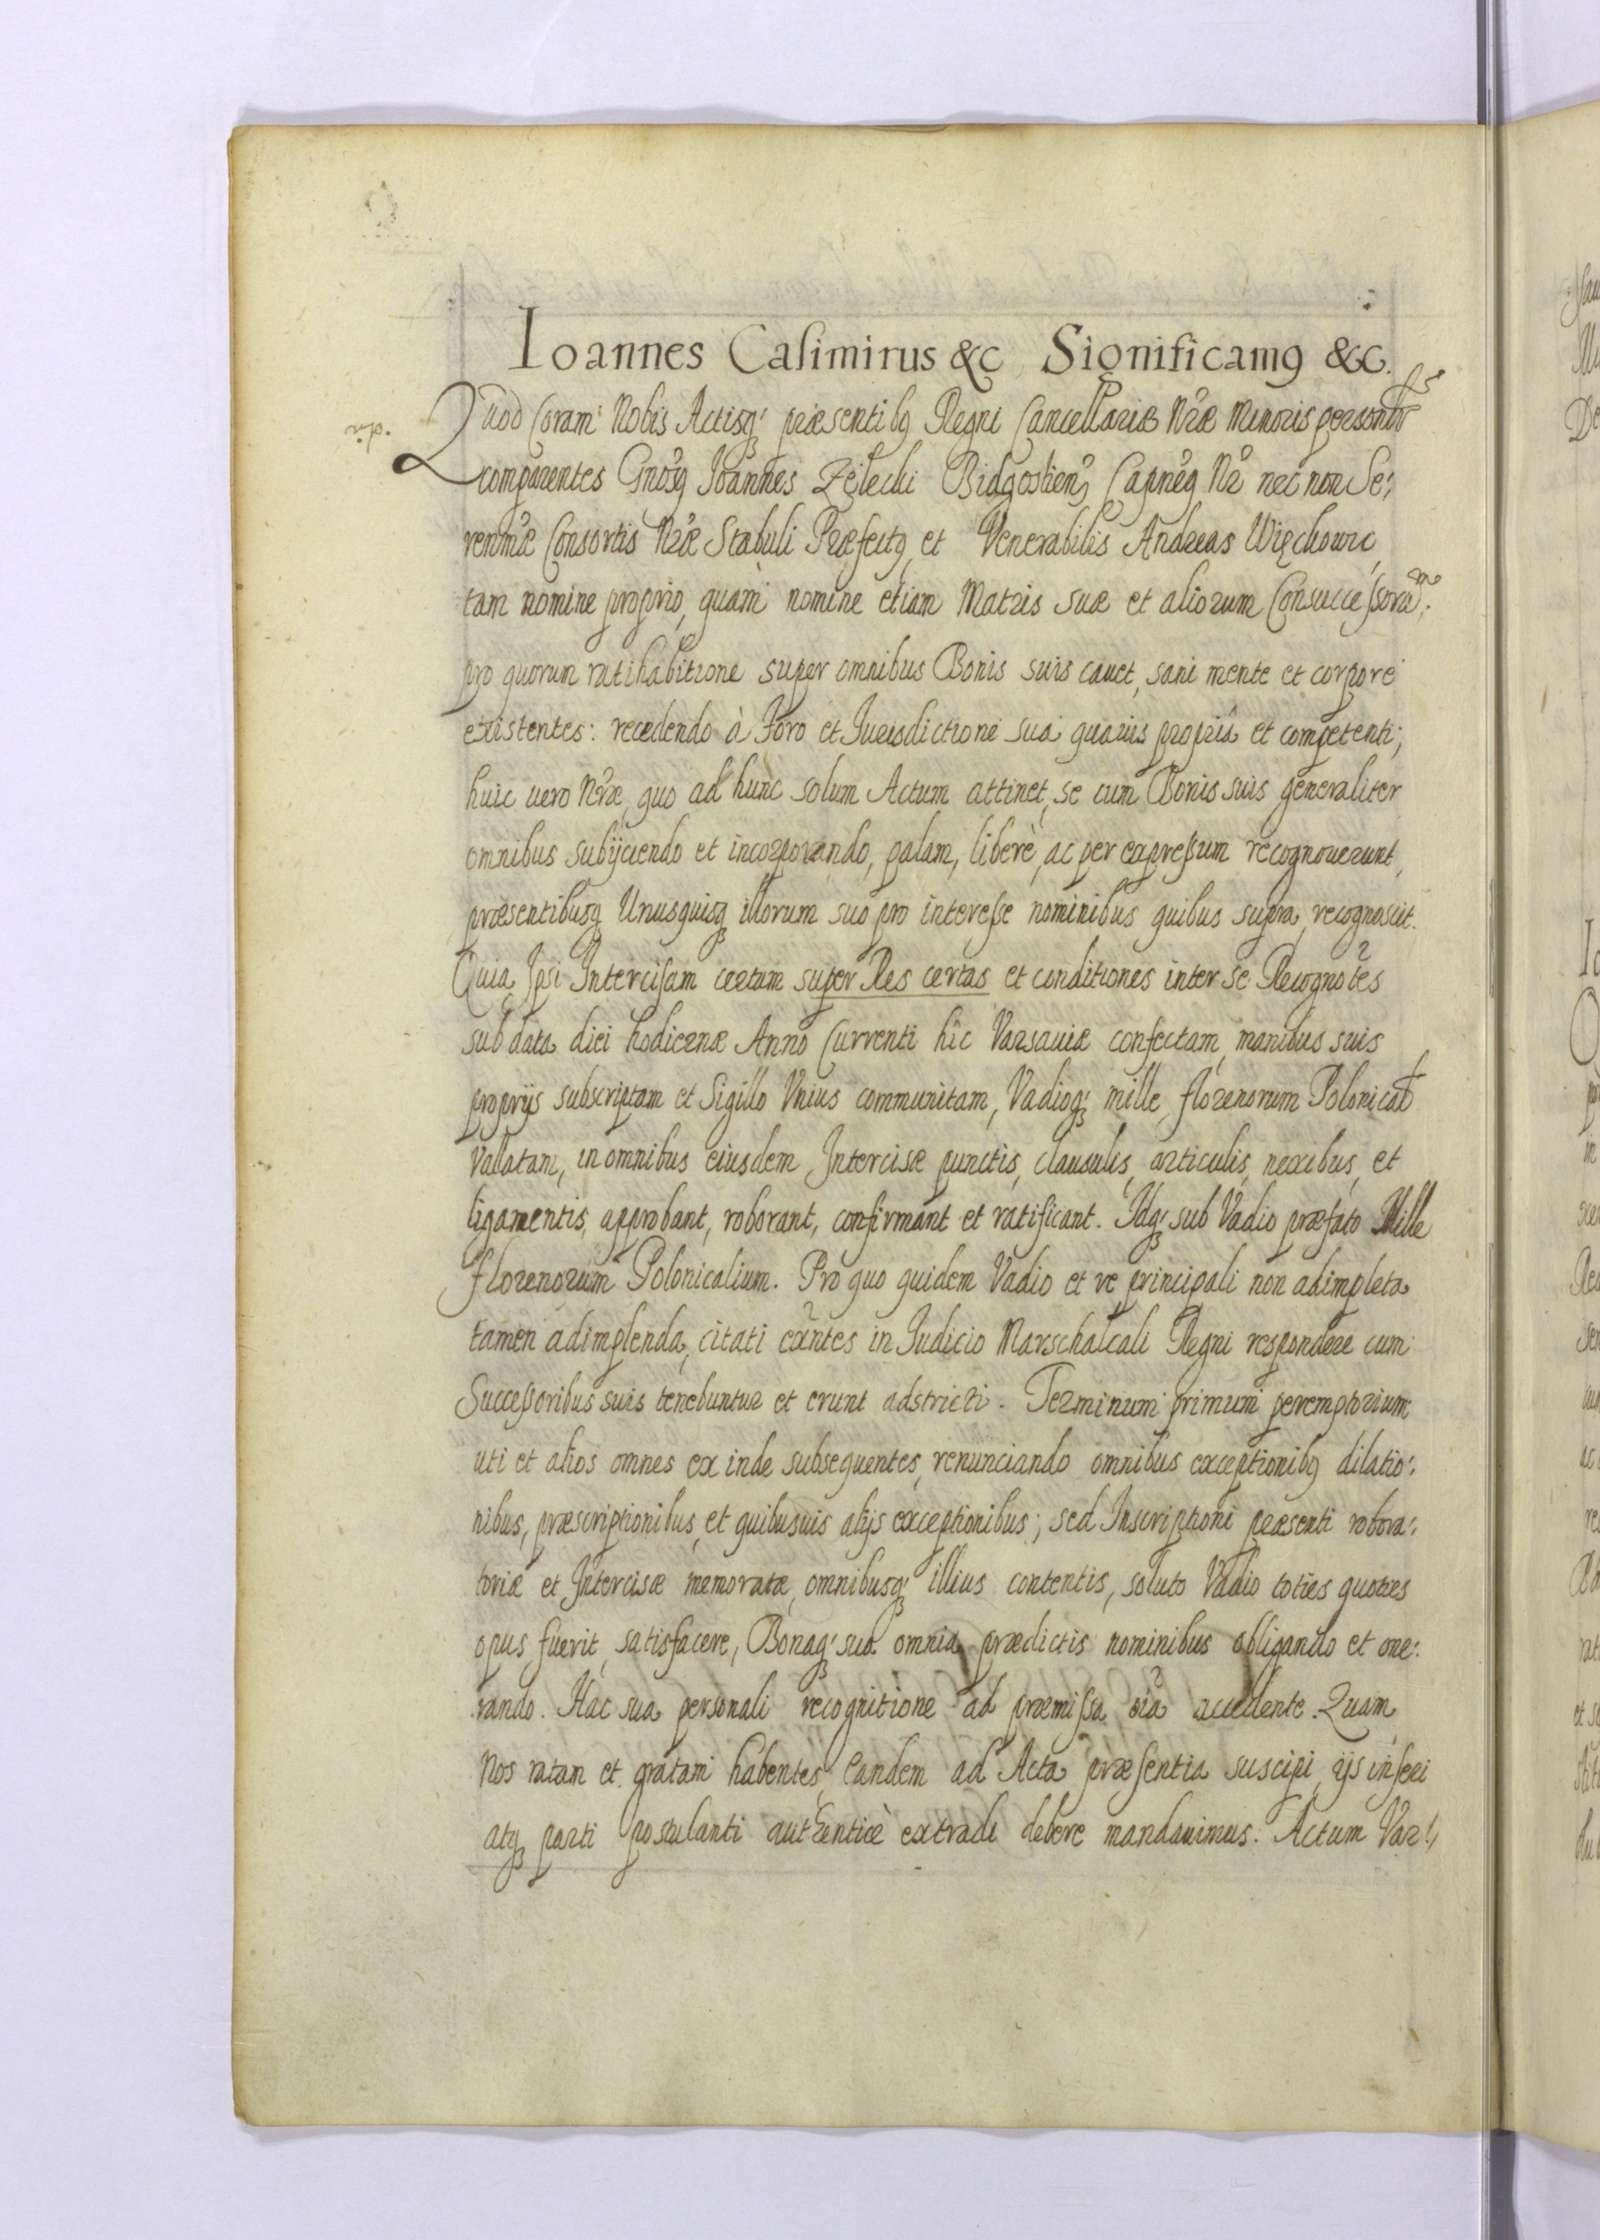 Ioannes Casimirus &c Significamq &c.
Quod Coram Nobis Actisq præsentibq Regni Cancellariæ Nræ Minoris personlr
comparentes Gnosq Joannes Zelecki Bidgostien Capneq Nr nec non Se:
renmæ Consortis Nræ Stabuli Præfectq, et Venerabilis Andreas Więckowic,
tam nomine proprio, quam nomine etiam Matris suæ et aliorum Consuccessorum,
pro quorum ratihabitione super omnibus Bonis suis cauet, sani mente et corpore
existentes: recedendo à Foro et Iurisdictione sua quavis propriâ et competenti;
huic uero Nræ, quo ad hunc solum Actum attinet, se cum Bonis suis generaliter
omnibus subijciendo et incorporando, palam, liberè, ac per expressum recognouerunt,
præsentibusq Unusquisq illorum suo pro interesse nominibus quibus supra, recognoscit.
Quia Ipsi Intercisam certam super Res certas et conditiones inter se Recognotes
sub data diei hodiernæ Anno Currenti hîc Varsauiæ confectam, manibus suis
proprijs subscriptam et Sigillo Vnius communitam, Vadioq mille florenorum Polonical
Vallatam, in omnibus eiusdem Intercisæ punctis, clausulis, articulis, nexibus, et
ligamentis, approbant, roborant, confirmant et ratificant. Idq sub Vadio præfato Mille
florenorum Polonicalium. Pro quo quidem Vadio et re principali non adimpleta
tamen adimplenda, citati exntes in Iudicio Marschalcali Regni respondere cum
Successoribus suis tenebuntur et erunt adstricti. Terminum primum peremptorium
uti et alios omnes ex inde subsequentes, renunciando omnibus exceptionibq dilatio:
nibus, præscriptionibus, et quibusuis alijs exceptionibus; sed Inscriptioni præsenti robora:
toriæ et Intercisæ memoratæ, omnibusq illius contentis, soluto Vadio toties quoties
opus fuerit, satisfacere, Bonaq sua omnia prædictis nominibus obligando et one:
rando. Hac sua personali recognitione ad præmissa oia accedente. Quam
Nos ratam et gratam habentes, Eandem ad Acta præsentia suscipi, ijs inseri
atq parti postulanti authenticè extradi debere mandauimus. Actum Var: